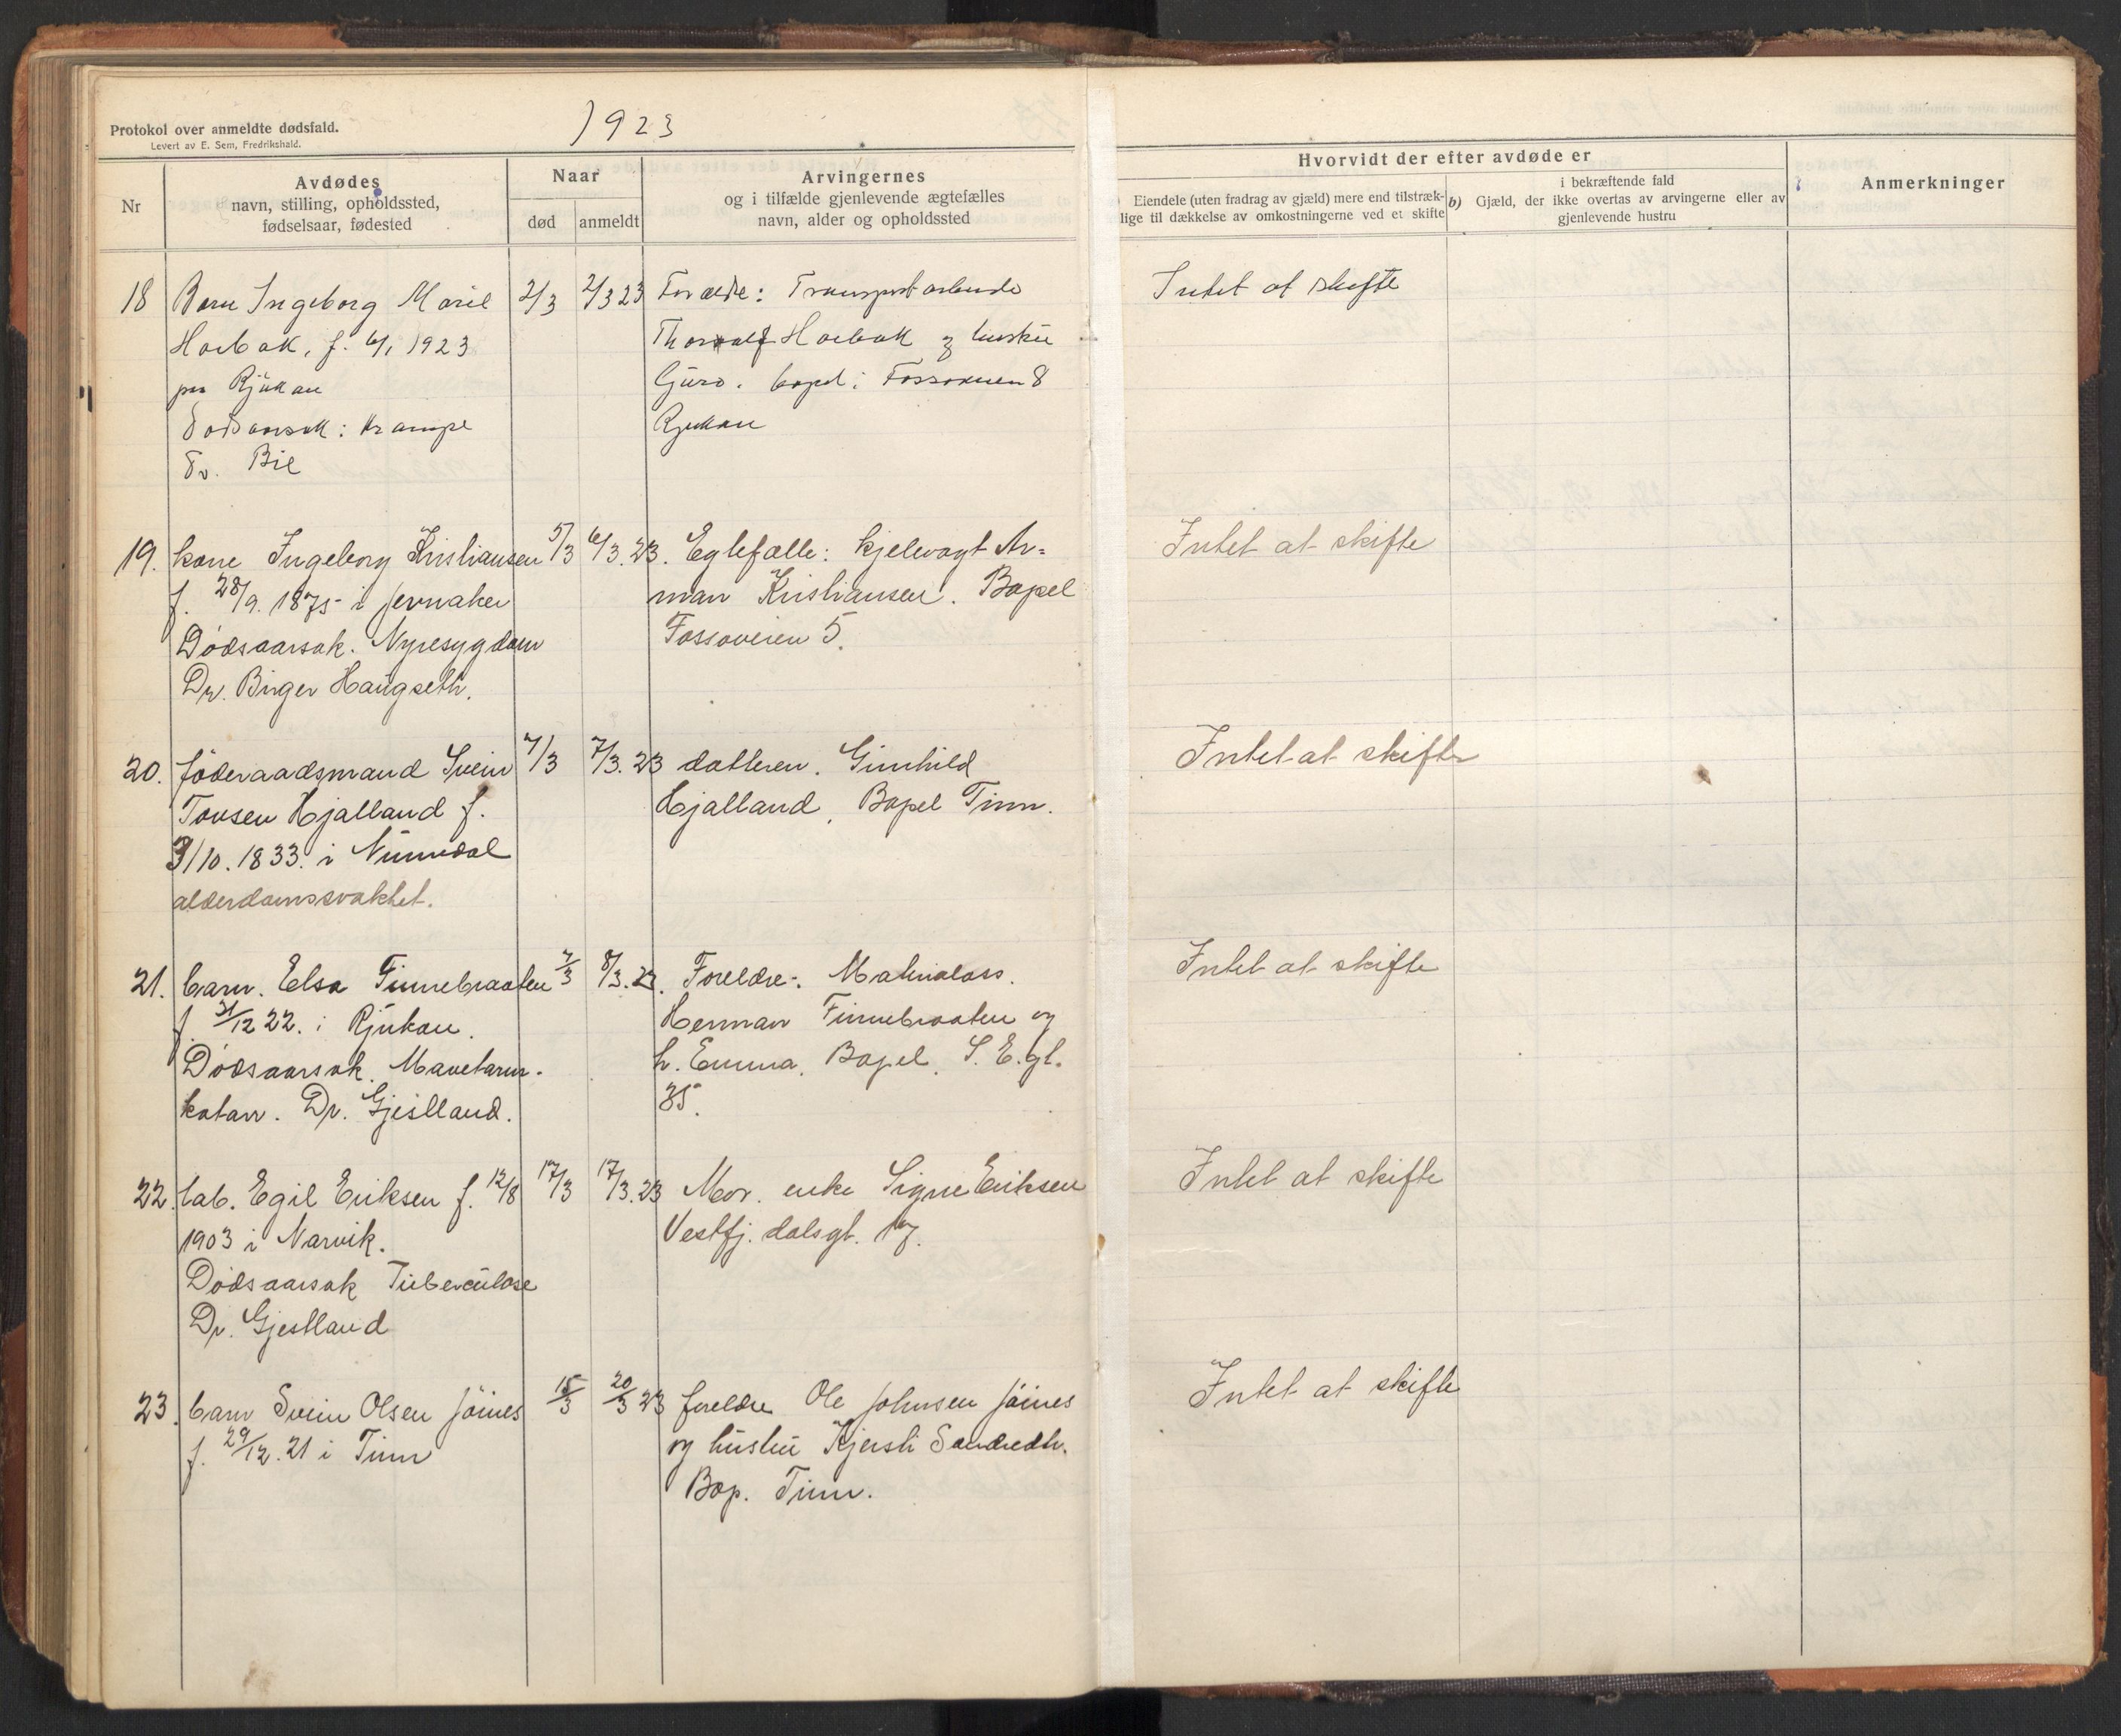 Protokol over anmeldte dødsfald.
Levert av E. Sem, Fredrikshald.
1923
Nr
Avdødes
navn, stilling, opholdssted,
fødselsaar, fødested
Naar
død
anmeldt
Arvingernes
og i tilfælde gjenlevende ægtefælles
navn, alder og opholdssted
Hvorvidt der efter avdøde er
Eiendele (uten fradrag av gjæld) mere end tilstræk-
lige til dækkelse av omkostningerne ved et skifte
b) i bekræftende fald
Gjæld, der ikke overtas av arvingerne eller av
gjenlevende hustru
Anmerkninger
18 Barn Ingeborg Marie 2/3 2/3 23 Forældre: Transportarbeide
Horbak, f. 6/1 1923 Thorvalf Horbak og hustru
paa Rjukan Guro. bopel: Fossoveien 8
Dødsaarsak: Krampe Rjukan
Dr. Bie
Intet at skifte
19. kone Ingeborg Kristiansen 5/3 6/3.23. Egtefælle: kjelevagt Ar=
f. 28/9.1875 i Jevnaker man Kristiansen. Bopel
Dødsaarsak. Nyresygdom Fossoveien 5.
Dr. Birger Haugseth.
Intet at skifte
20. föderaadsmand Svein 7/3 7/3.23 datteren. Gunhild
Tovsen Hjalland f. Hjalland, Bopel Tinn.
3/10.1833. i Numedal
alderdomssvakhet.
Intet at skifte
21. barn. Elsa Finnebraaten 7/3 8/3.23. Foreldre: Materialass.
f. 31/12 22. i Rjukan. Herman Finnebraaten og
Dødsaarsak. Mavetarm- h. Emma, Bopel, S. E. gt.
katarr. Dr. Gjestland. 35.
Intet at skifte
22. lab. Egil Eriksen f. 12/8 17/3 17/3.23 Mor. enke Signe Eriksen
1903 i Narvik. Vestfj. dalsgt. 17.
Dødsaarsak Tuberculose
Dr. Gjestland
Intet at skifte
23. barn Svein Olsen Jöines 15/3 20/3 23 foreldre Ole Johnsen Jöines
f. 29/12.21 i Tinn og hustru Kjersti Sandredtr.
Bop. Tinn.
Intet at skifte